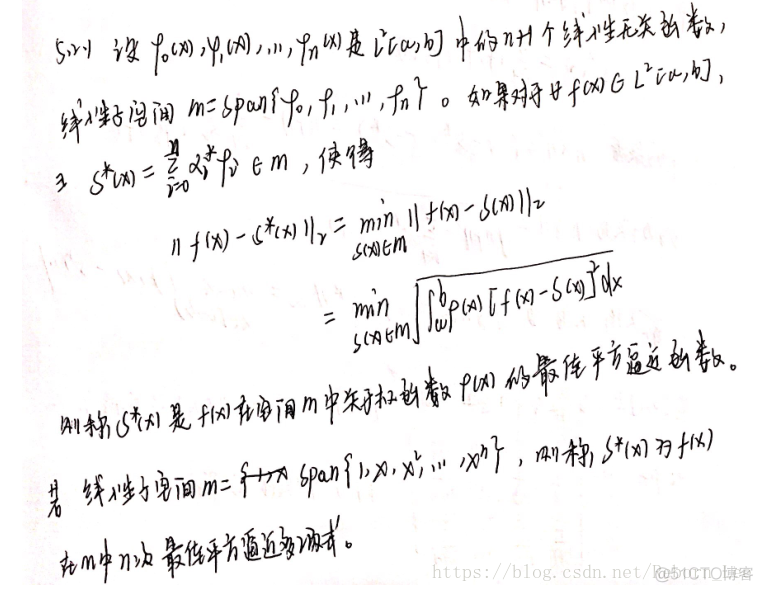 5.2.1 设 φ₀(x), φ₁(x), ..., φₙ(x)是L²[a,b]中的n+1个线性无关函数,
线性子空间 m=span{φ₀, φ₁, ..., φₙ}。如果对于∀f(x)∈L²[a,b],
∃ S*(x)=∑ᵢ₌₀ⁿ αᵢ*φᵢ ∈m,使得
‖f(x)-S*(x)‖₂ = min_{S(x)∈m} ‖f(x)-S(x)‖₂
= min_{S(x)∈m} √(∫ₐᵇ ρ(x)[f(x)-S(x)]²dx)
则称S*(x)是f(x)在空间m中关于权函数ρ(x)的最佳平方逼近函数。
若 线性子空间m= span{1, x, x², ..., xⁿ},则称S*(x)为f(x)
在m中n次最佳平方逼近多项式。
@51CTO博客